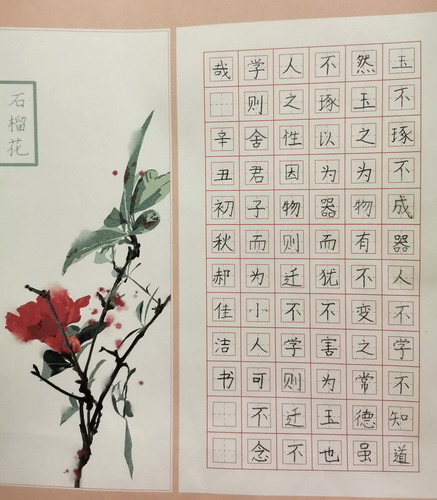 玉不琢不成器人不学不知道
然玉之为物有不变之常德虽
不琢以为器而犹不害为玉也
人之性因物则迁不学则迁不
学则舍君子而为小人可不念
哉
辛丑初秋郝佳洁书
石榴花